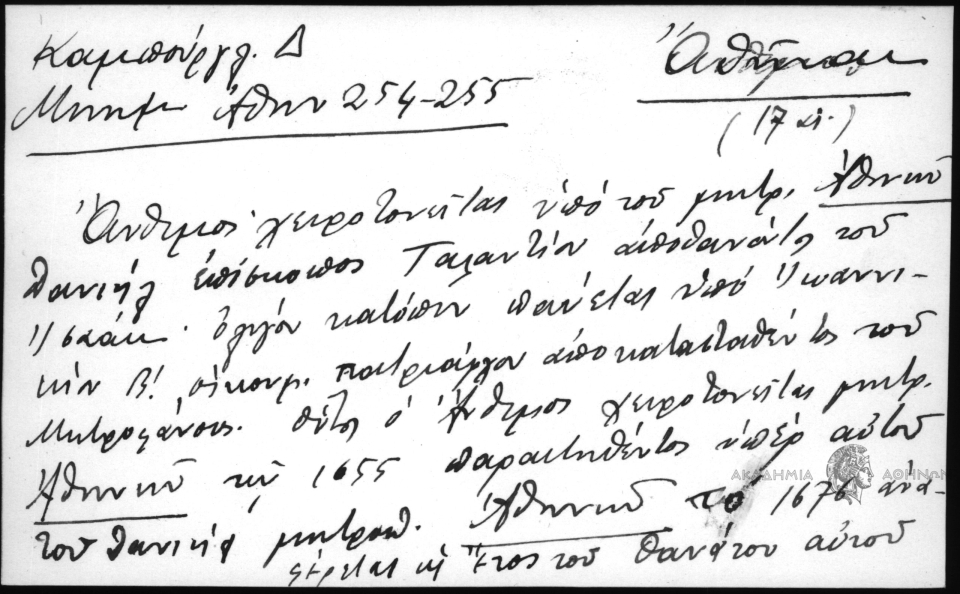 Καμπούργλ. Δ
Μνημ Ἀθην 254-255
Ἄνθιμος
(17 αἰ.)
Ἄνθιμος χειροτονεῖται ὑπό τοῦ μητρ. Ἀθηνῶν
Δανιήλ ἐπίσκοπος Ταλαντίου ἀποθανόντος τοῦ
Ἰσαάκ. Ὀλίγον κατόπιν παύεται ὑπό Ἰωαννι-
κίου Β! οἰκουμ. πατριάρχου ἀποκατασταθέντος τοῦ
Μητροφάνους. Οὗτος ὁ Ἄνθιμος χειροτονεῖται μητρ.
Ἀθηνῶν τῷ 1655 παραιτηθέντος ὑπέρ αὐτοῦ
τοῦ Δανιήλ μητροπ. Ἀθηνῶν τό 1676 ἀνα-
φέρεται ὡς ἔτος τοῦ θανάτου αὐτοῦ
ΑΚΑΔΗΜΙΑ ΑΘΗΝΩΝ